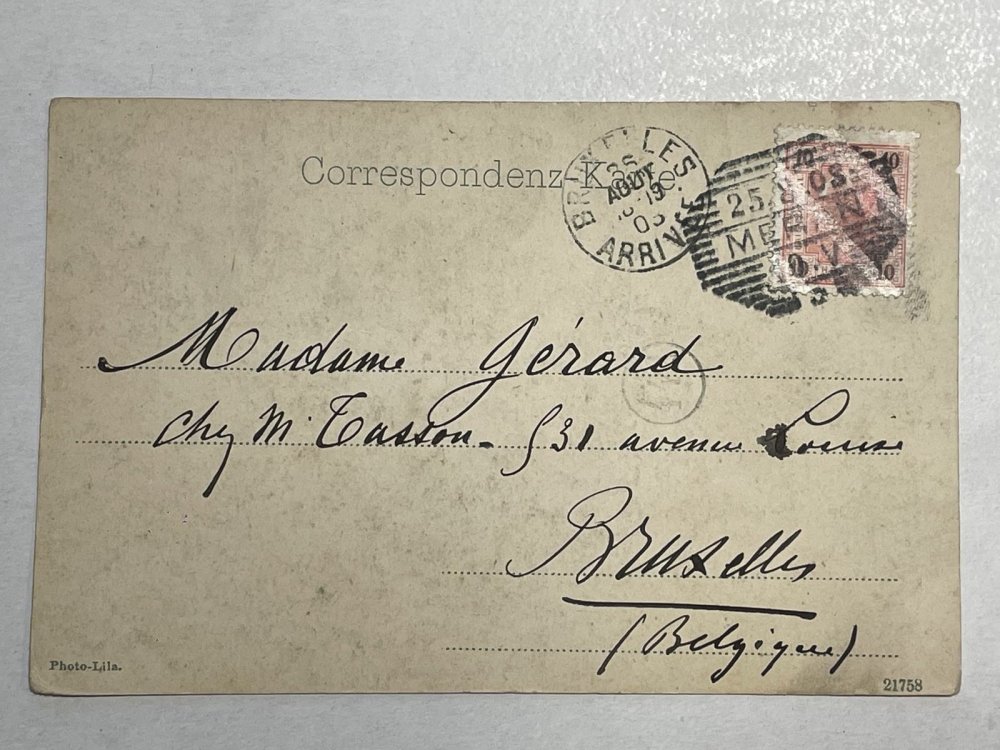 Correspondenz-Karte.
BRUXELLES
AOUT
ARRIVÉE
10 10
10
25
ME
Madame Gérard
chez Mr Tasson - 531 avenue Louise
Bruxelles
(Belgique)
Photo-Lila.
21758